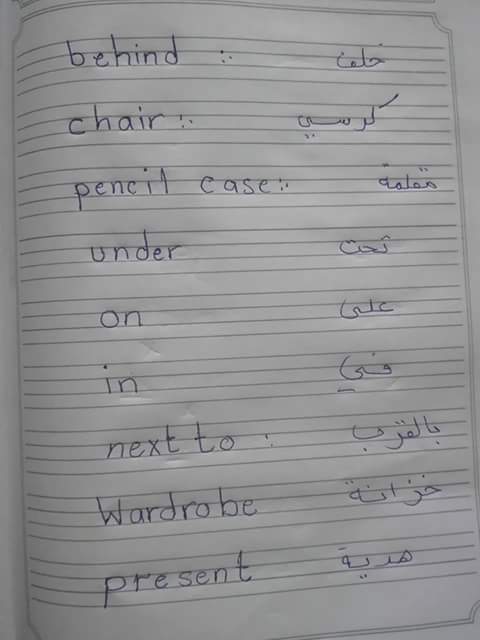 behind :. خلف
chair :. كرسي
pencil case :. مقلمة
under تحت
on على
in في
next to : بالقرب
Wardrobe خزانة
present هدية